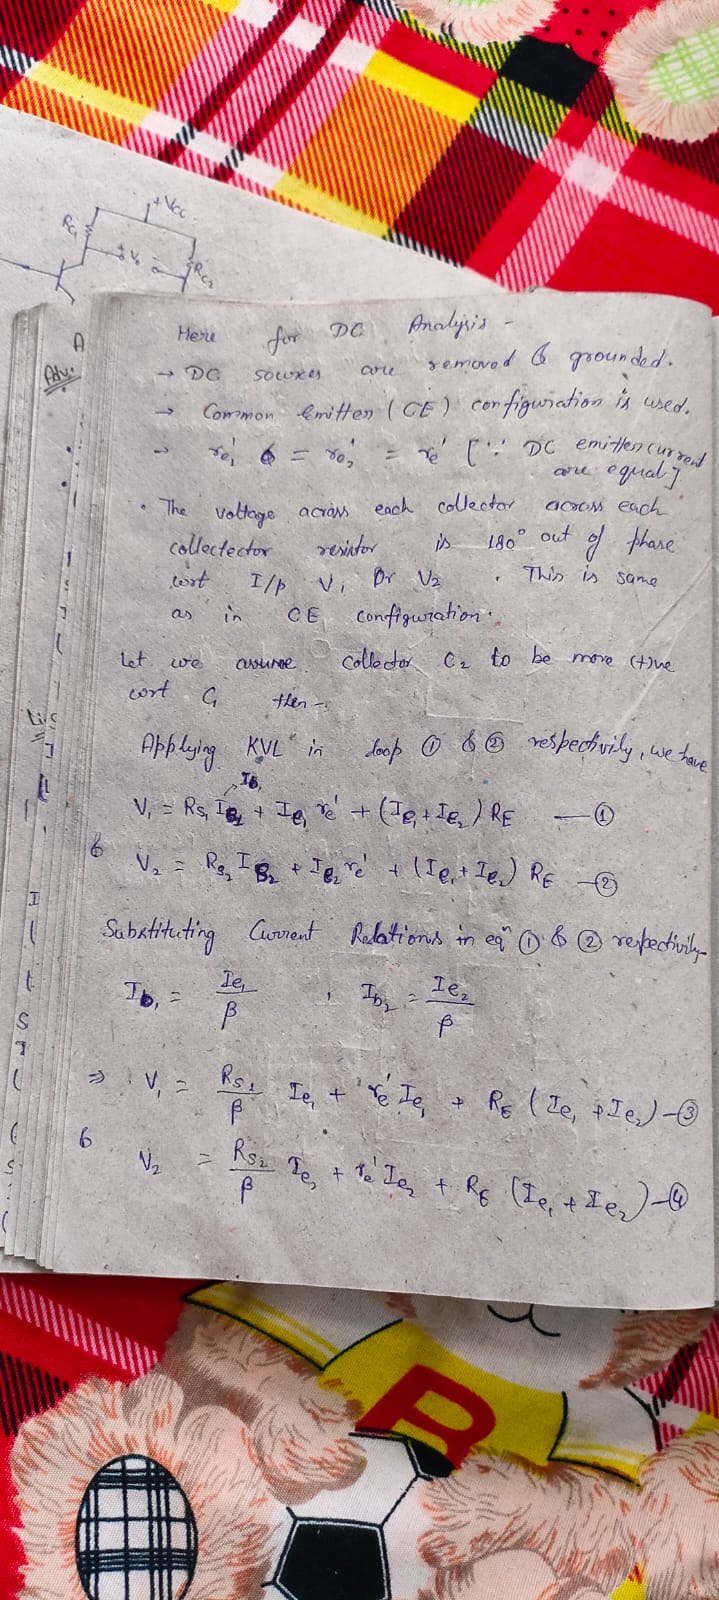 +Vcc
Rc₁
+ V₀ -
Rc₂
A
Adv:
Here for DC Analysis -
→ DC sources are removed & grounded.
→ Common Emitter (CE) configuration is used.
→ re₁' & = re₂' = re' [∵ DC emitter current are equal]
• The voltage across each collector across each
collectector resistor is 180° out of phase
wrt I/p V₁ or V₂ . This is same
as in CE configuration.
Let we assume collector C₂ to be more (+)ve
wrt C₁ then -
Applying KVL in loop ① & ② respectivily, we have
Ib₁
V₁ = Rs₁ IB₁ + Ie₁ re' + (Ie₁ + Ie₂) RE — ①
& V₂ = Rs₂ IB₂ + Ie₂ re' + (Ie₁ + Ie₂) RE — ②
Substituting Current Relations in eqⁿ ① & ② respectivily-
Ib₁ = Ie₁/β , Ib₂ = Ie₂/β
⇒ V₁ = Rs₁/β Ie₁ + re' Ie₁ + RE (Ie₁ + Ie₂) — ③
& V₂ = Rs₂/β Ie₂ + re' Ie₂ + RE (Ie₁ + Ie₂) — ④
B